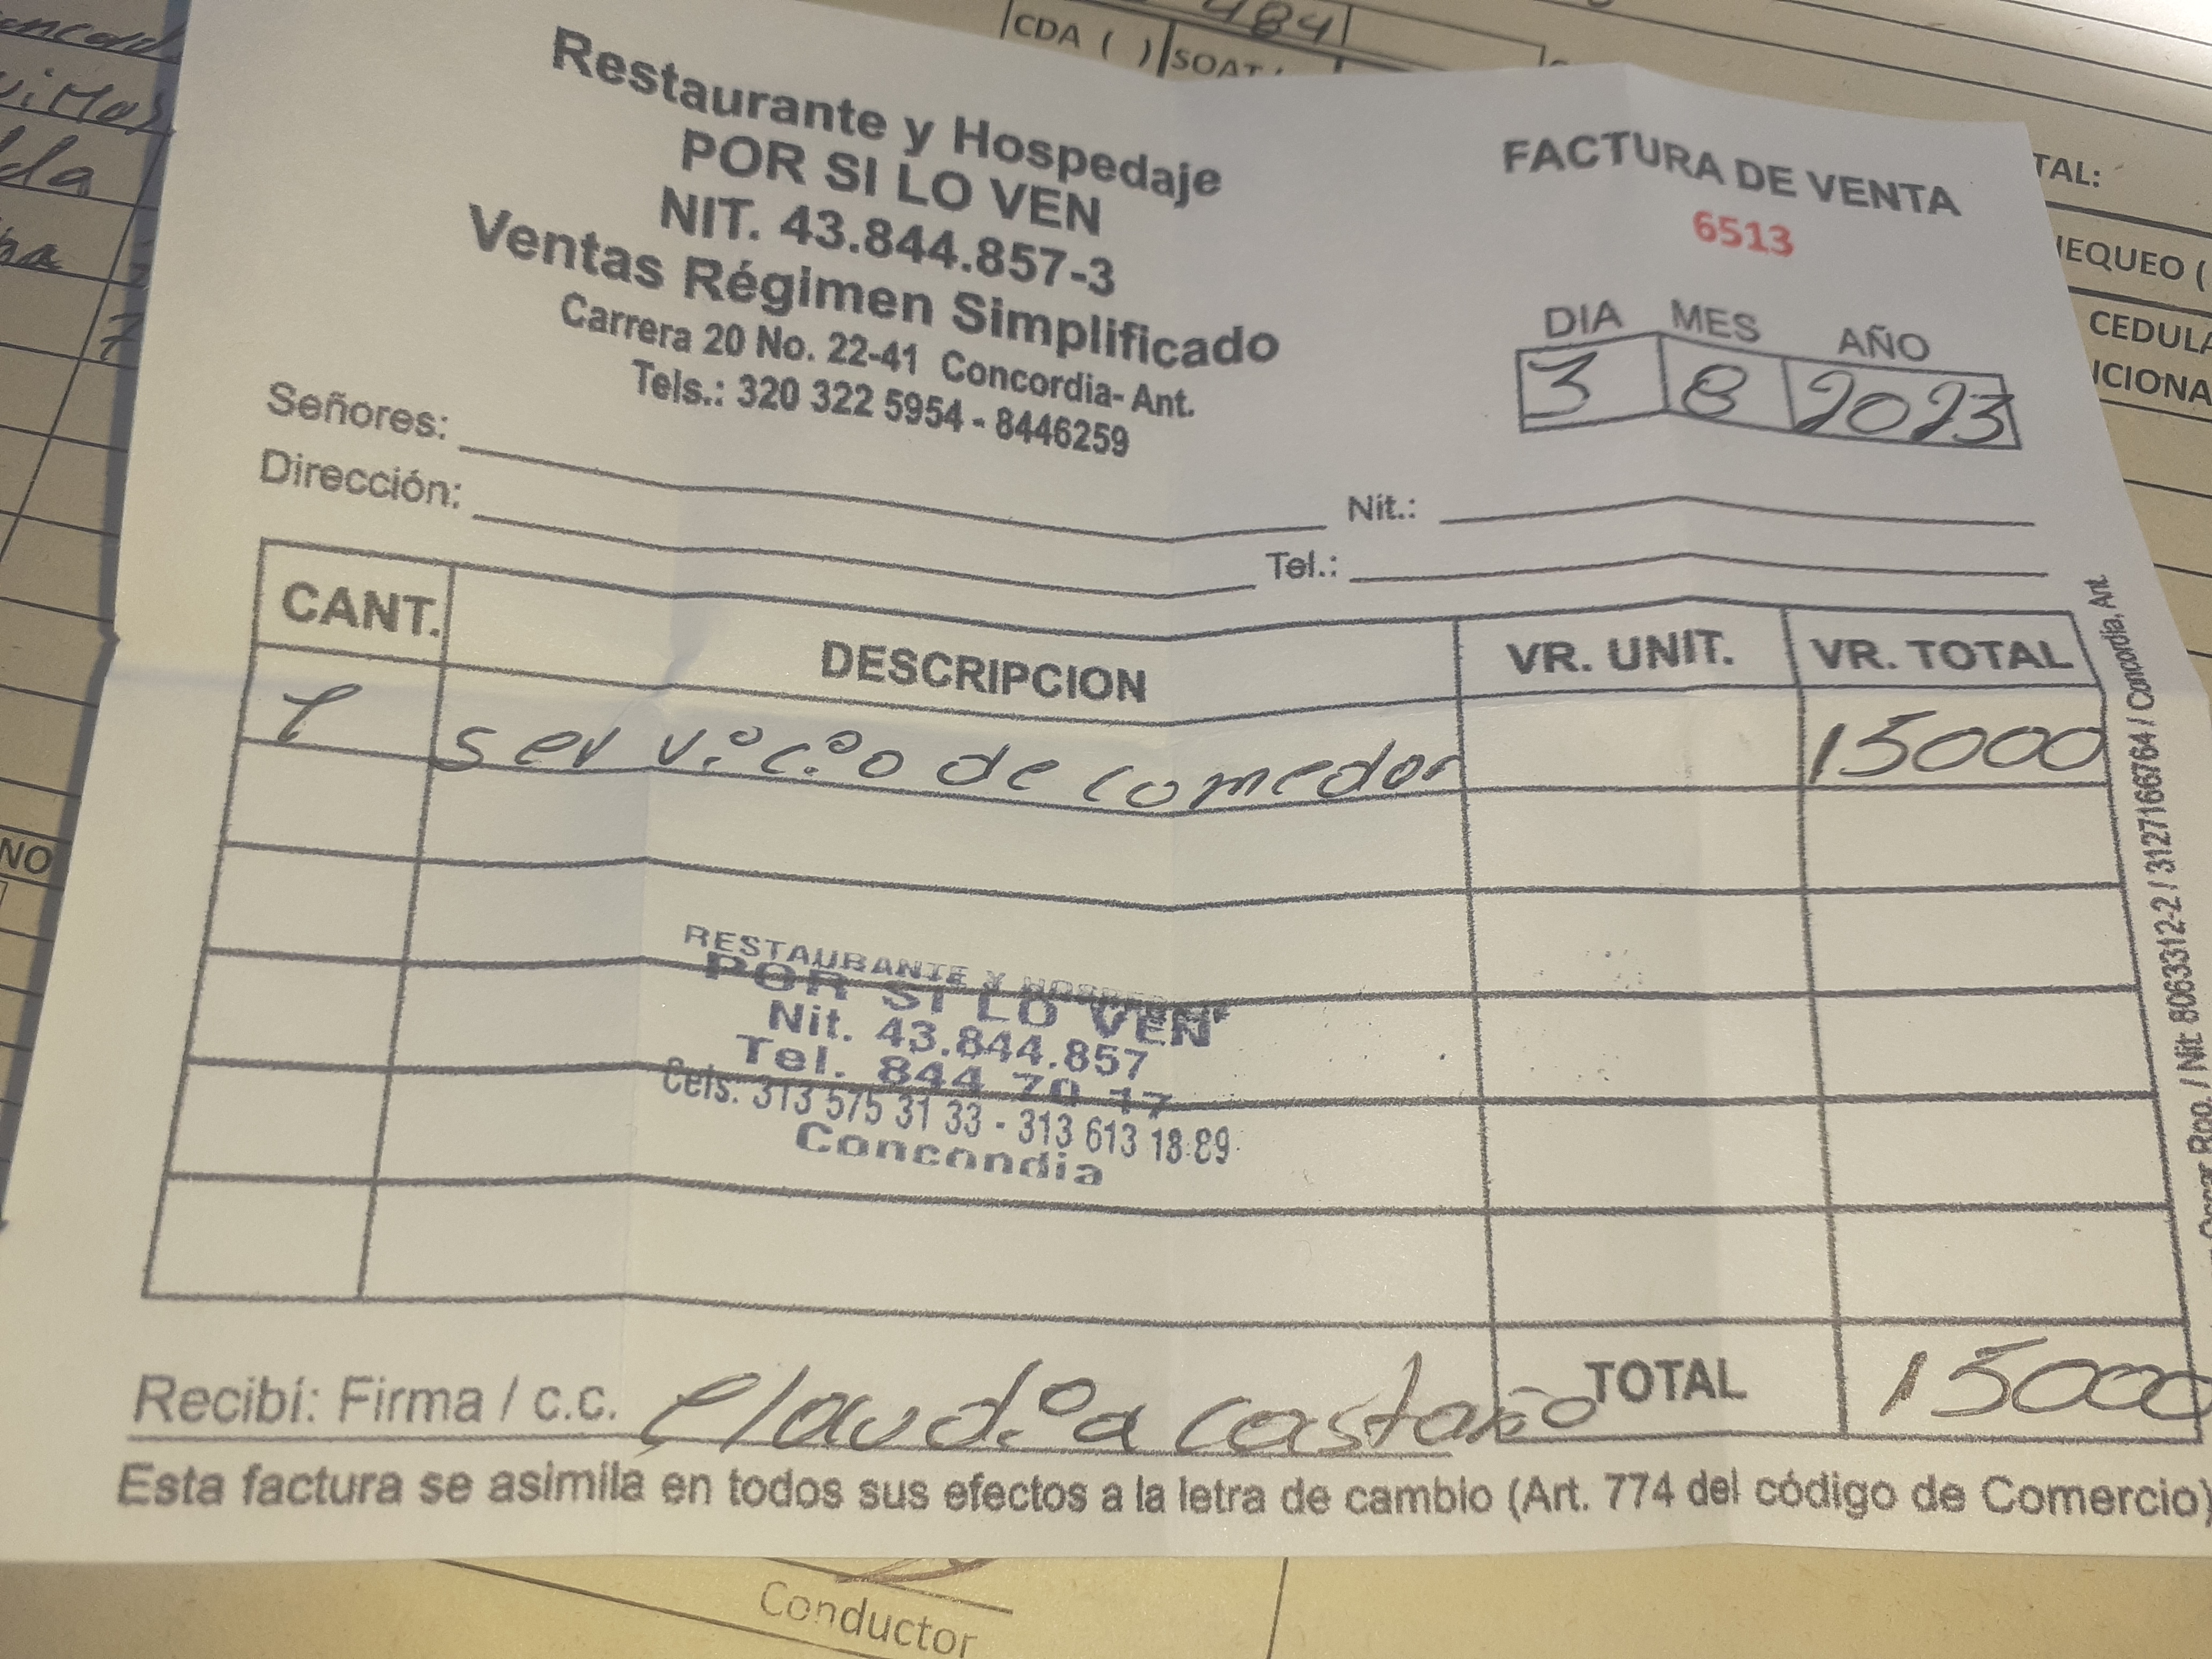 484
CDA ( ) SOAT
Restaurante y Hospedaje
POR SI LO VEN
NIT. 43.844.857-3
Ventas Régimen Simplificado
Carrera 20 No. 22-41 Concordia- Ant.
Tels.: 320 322 5954 - 8446259
FACTURA DE VENTA
6513
DIA MES AÑO
3 8 2023
Señores: Nit.:
Dirección: Tel.:
CANT. DESCRIPCION VR. UNIT. VR. TOTAL
1 servicio de comedor 15000
RESTAURANTE Y HOSPEDAJE
POR SI LO VEN
Nit. 43.844.857
Tel. 844 70 17
Cels: 313 575 31 33 - 313 613 18 89
Concordia
TOTAL 15000
Recibí: Firma / c.c. Claudia Castaño
Esta factura se asimila en todos sus efectos a la letra de cambio (Art. 774 del código de Comercio)
Rpo. / Nit: 8063312-2 / 3127166764 / Concordia, Ant.
TAL:
CEDULA
NO
Conductor